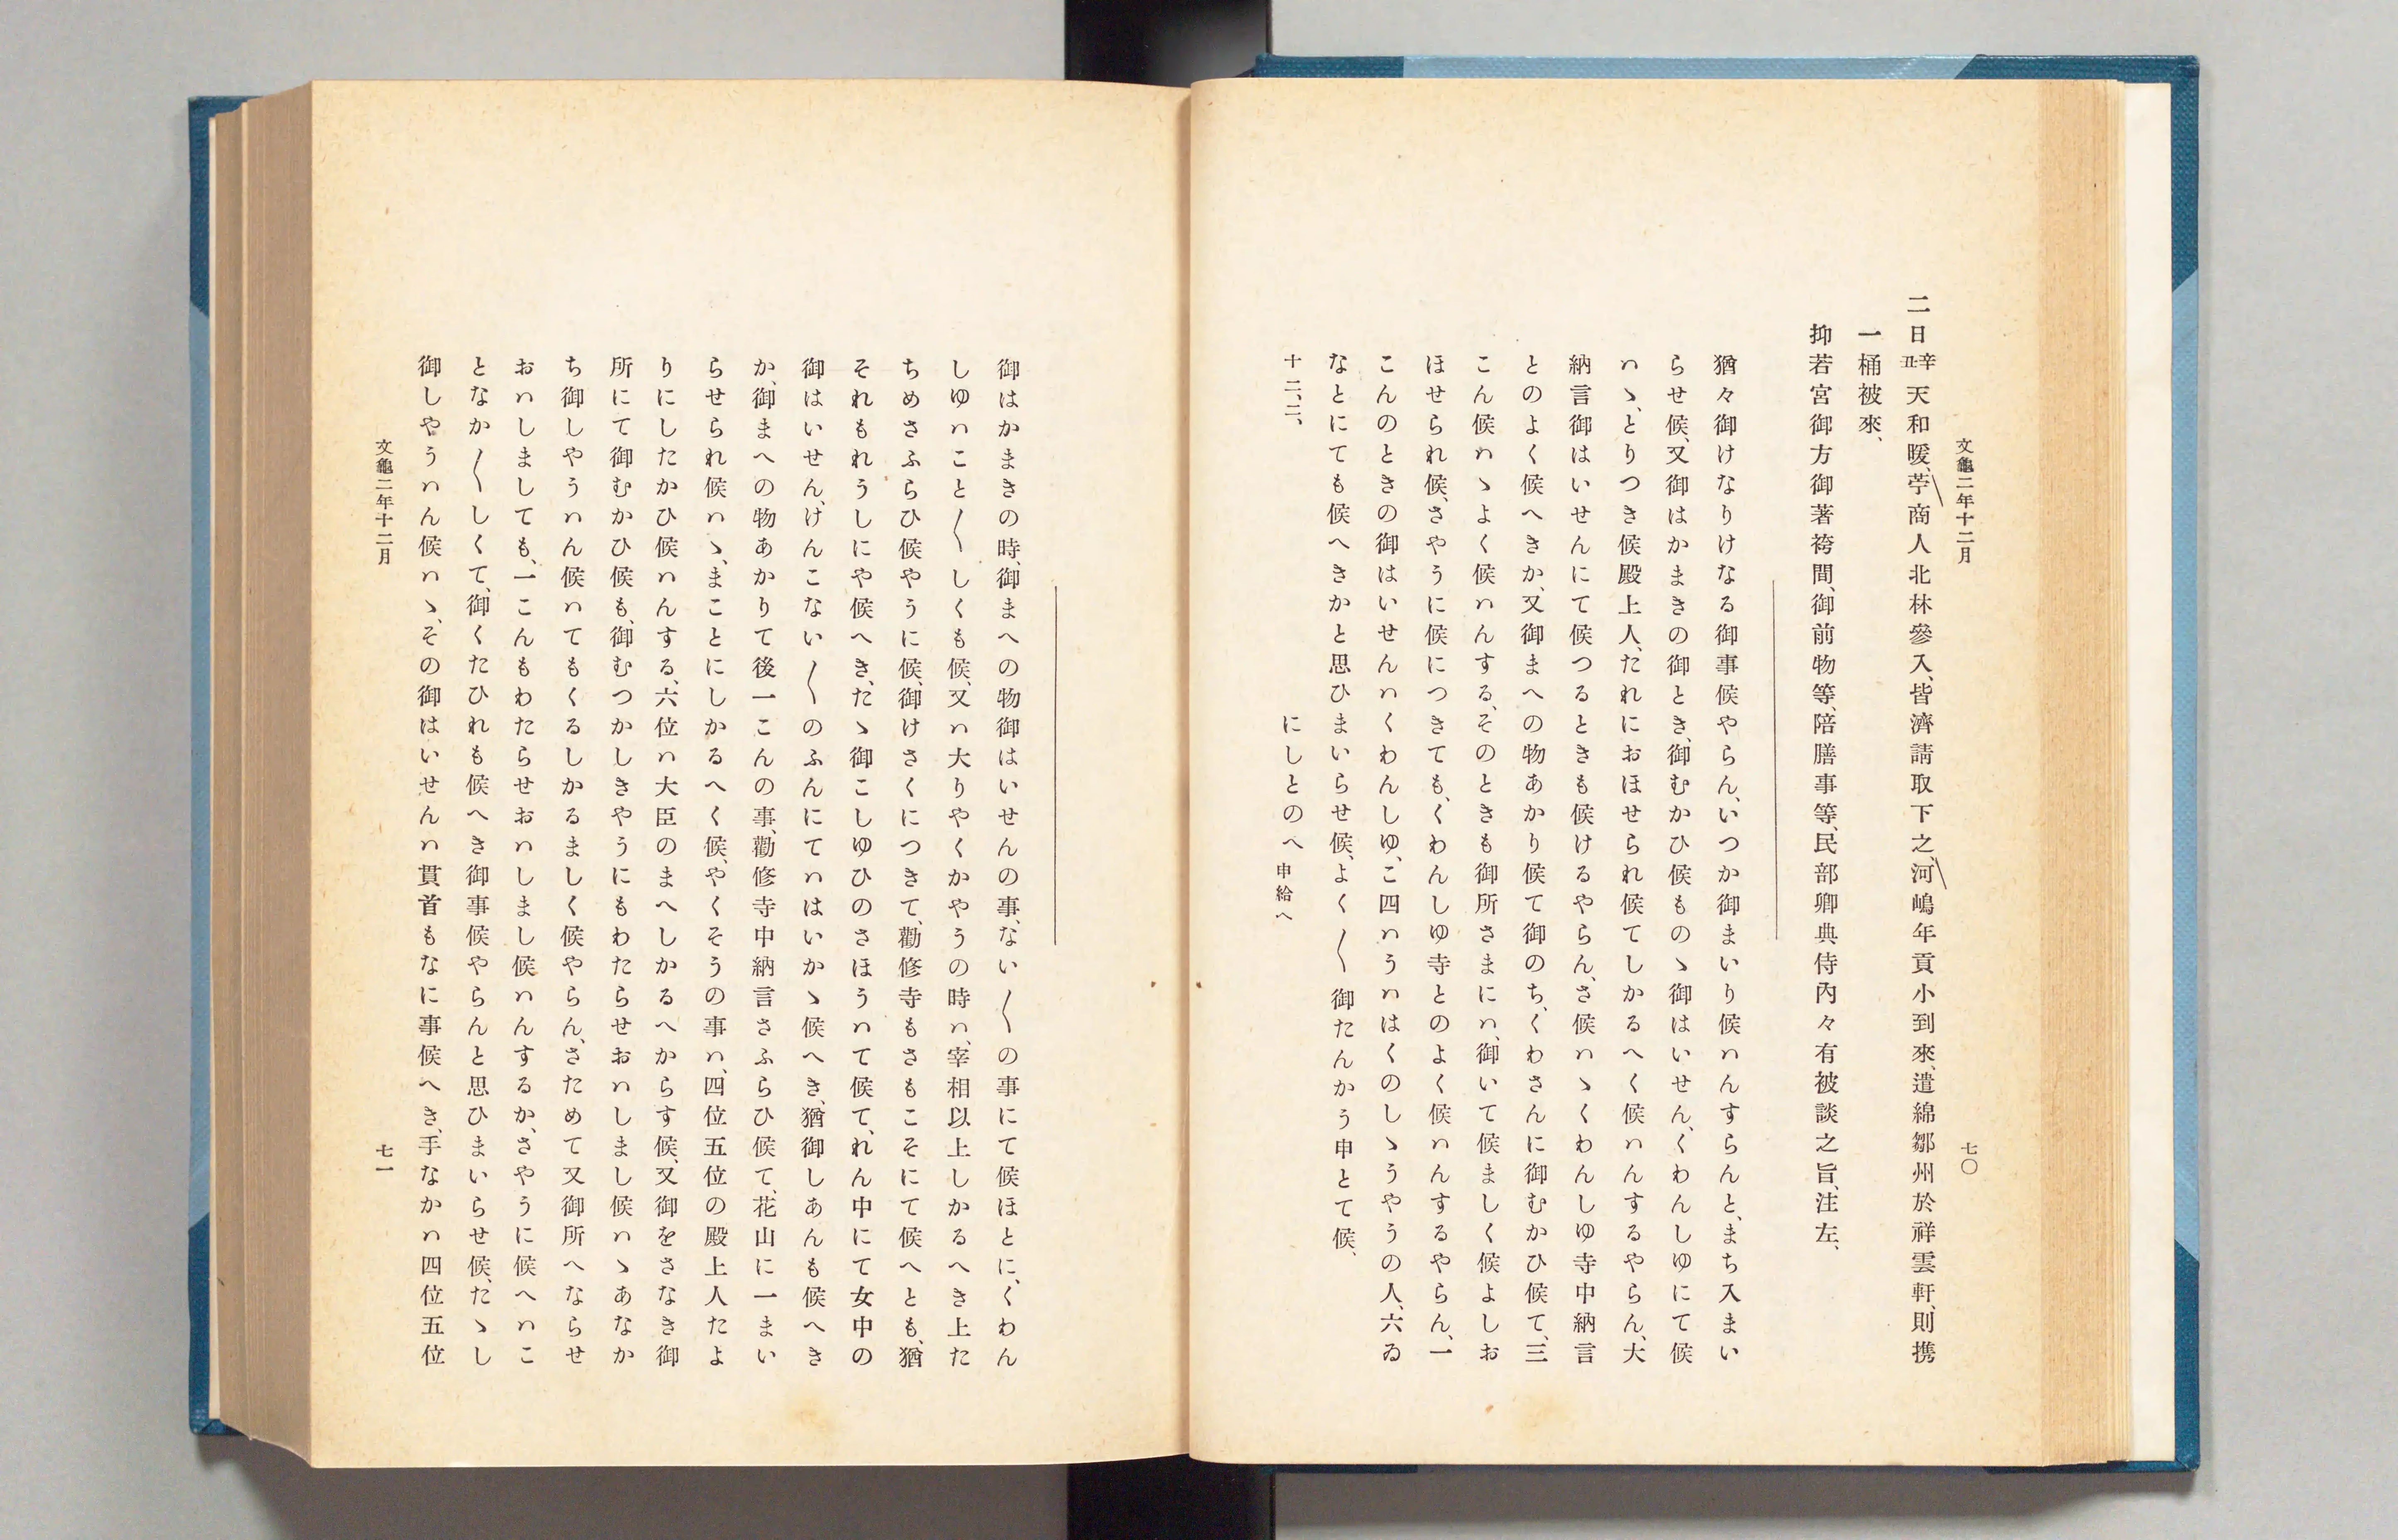 文龜二年十二月
七〇
二日辛丑天和暖、苧商人北林參入、皆濟請取下之、河嶋年貢小到來、遣綿鄒州於祥雲軒、則携
一桶被來、
抑若宮御方御著袴間、御前物等、陪膳事等、民部卿典侍內々有被談之旨、注左、
猶々御けなりけなる御事候やらん、いつか御まいり候ハんすらんと、まち入まい
らせ候、又御はかまきの御とき、御むかひ候ものゝ御はいせん、くわんしゆにて候
ハゝ、とりつき候殿上人、たれにおほせられ候てしかるへく候ハんするやらん、大
納言御はいせんにて候つるときも候けるやらん、さ候ハゝくわんしゆ寺中納言
とのよく候へきか、又御まへの物あかり候て御のち、くわさんに御むかひ候て、三
こん候ハゝよく候ハんする、そのときも御所さまにハ、御いて候ましく候よしお
ほせられ候、さやうに候につきても、くわんしゆ寺とのよく候ハんするやらん、一
こんのときの御はいせんハくわんしゆ、こ四ハうハはくのしゝうやうの人、六ゐ
なとにても候へきかと思ひまいらせ候、よく〱御たんかう申とて候、
十二、二、　にしとのへ申給へ
御はかまきの時、御まへの物御はいせんの事、ない〱の事にて候ほとに、くわん
しゆハこと〱しくも候、又ハ大りやくかやうの時ハ、宰相以上しかるへき上た
ちめさふらひ候やうに候、御けさくにつきて、勸修寺もさもこそにて候へとも、猶
それもれうしにや候へき、たゝ御こしゆひのさほうハて候て、れん中にて女中の
御はいせん、けんこない〱のふんにてハはいかゝ候へき、猶御しあんも候へき
か、御まへの物あかりて後一こんの事、勸修寺中納言さふらひ候て、花山に一まい
らせられ候ハゝ、まことにしかるへく候、やくそうの事ハ、四位五位の殿上人たよ
りにしたかひ候ハんする、六位ハ大臣のまへしかるへからす候、又御をさなき御
所にて御むかひ候も、御むつかしきやうにもわたらせおハしまし候ハゝあなか
ち御しやうハん候ハてもくるしかるましく候やらん、さためて又御所へならせ
おハしましても、一こんもわたらせおハしまし候ハんするか、さやうに候へハこ
となか〱しくて、御くたひれも候へき御事候やらんと思ひまいらせ候、たゝし
御しやうハん候ハゝ、その御はいせんハ貫首もなに事候へき、手なかハ四位五位
文龜二年十二月
七一